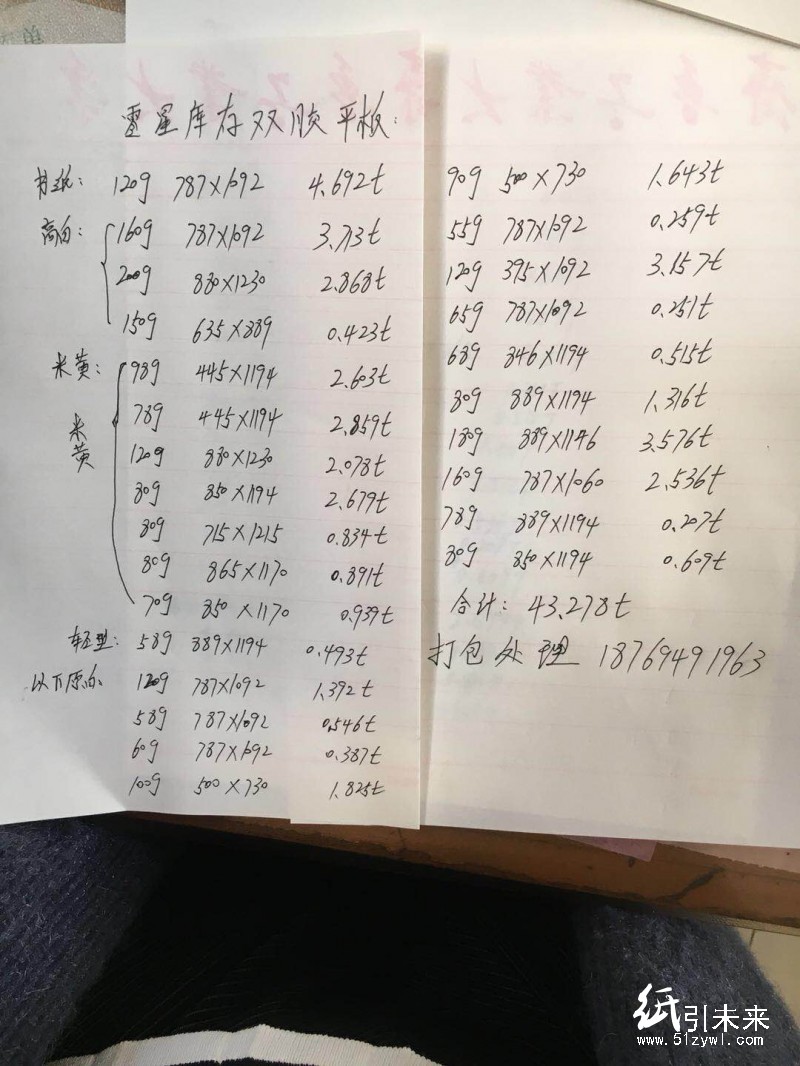 雷星库存双胶平板：
书纸： 120g 787×1092 4.692t
高白： 160g 787×1092 3.73t
200g 880×1230 2.868t
150g 635×889 0.423t
米黄： 98g 445×1194 2.603t
米黄 78g 445×1194 2.859t
120g 880×1230 2.078t
80g 850×1194 2.679t
80g 715×1215 0.834t
80g 865×1170 0.891t
70g 850×1170 0.939t
轻型： 58g 889×1194 0.493t
以下原白 120g 787×1092 1.392t
58g 787×1092 0.546t
60g 787×1092 0.387t
100g 500×730 1.825t
90g 500×730 1.643t
55g 787×1092 0.259t
120g 395×1092 3.157t
65g 787×1092 0.251t
68g 846×1194 0.515t
80g 889×1194 1.316t
180g 889×1146 3.576t
160g 787×1060 2.536t
78g 889×1194 0.207t
80g 850×1194 0.609t
合计： 43.278t
打包处理 18769491963
纸引未来
www.51zywl.com